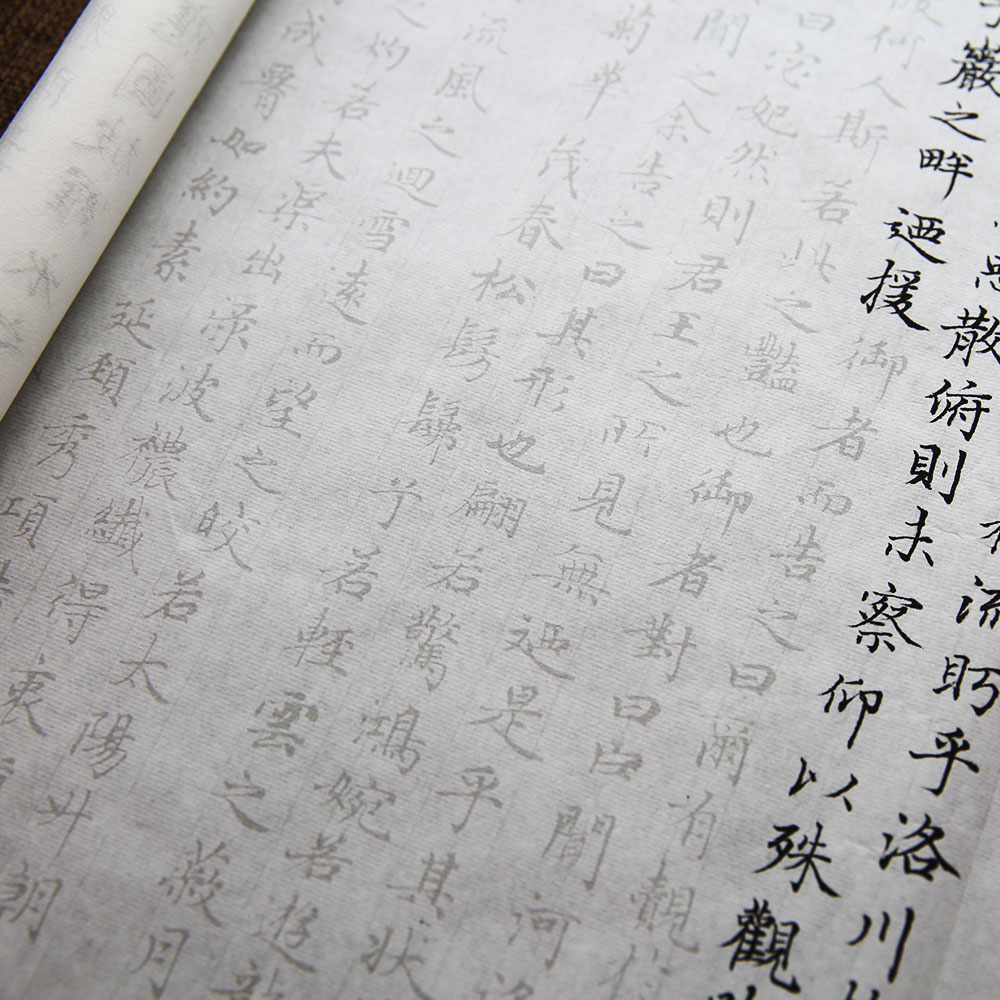 流眄乎洛川
思散俯則未察仰以殊觀
巖之畔迺援
御者而告之曰爾有覿
何人斯若此之豔也御者對曰臣聞河洛
曰宓妃然則君王之所見無迺是乎其狀
聞之余告之曰其形也翩若驚鴻婉若遊龍
菊華茂春松髣髴兮若輕雲之蔽月
流風之迴雪遠而望之皎若太陽升朝
之灼若夫渠出淥波襛纖得衷
成如約素延頸秀項